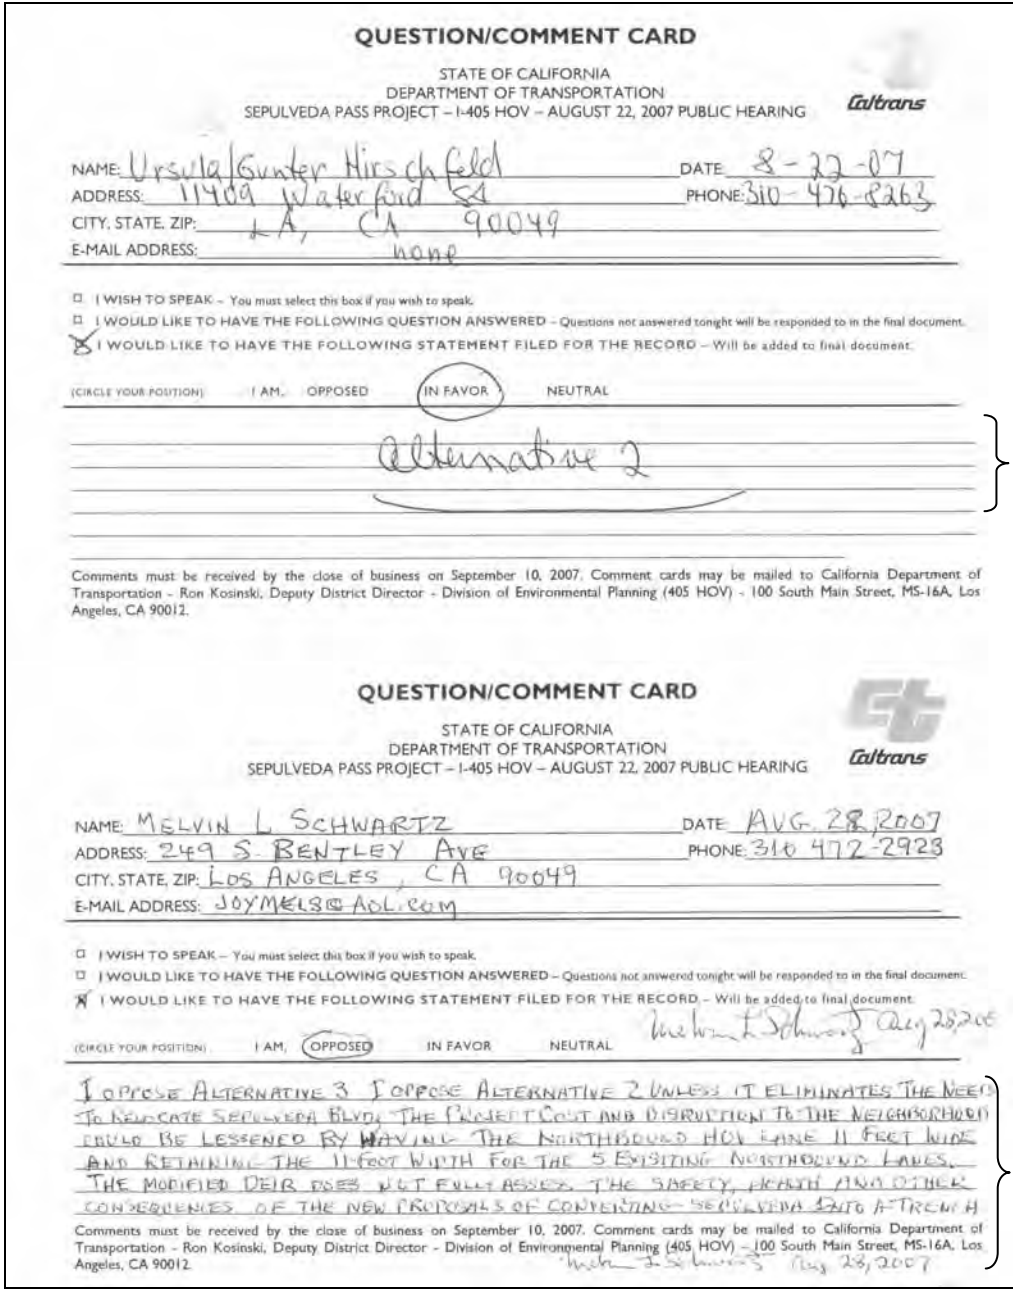 QUESTION/COMMENT CARD
STATE OF CALIFORNIA
DEPARTMENT OF TRANSPORTATION
SEPULVEDA PASS PROJECT – I-405 HOV – AUGUST 22, 2007 PUBLIC HEARING
Caltrans
NAME: Ursula/Gunter Hirschfeld DATE 8-22-07
ADDRESS: 11409 Waterford St PHONE: 310-476-8263
CITY, STATE, ZIP: LA, CA 90049
E-MAIL ADDRESS: none
I WISH TO SPEAK – You must select this box if you wish to speak.
I WOULD LIKE TO HAVE THE FOLLOWING QUESTION ANSWERED – Questions not answered tonight will be responded to in the final document.
I WOULD LIKE TO HAVE THE FOLLOWING STATEMENT FILED FOR THE RECORD – Will be added to final document.
(CIRCLE YOUR POSITION) I AM, OPPOSED IN FAVOR NEUTRAL
Alternative 2
Comments must be received by the close of business on September 10, 2007. Comment cards may be mailed to California Department of
Transportation - Ron Kosinski, Deputy District Director - Division of Environmental Planning (405 HOV) - 100 South Main Street, MS-16A, Los
Angeles, CA 90012.
QUESTION/COMMENT CARD
STATE OF CALIFORNIA
DEPARTMENT OF TRANSPORTATION
SEPULVEDA PASS PROJECT – I-405 HOV – AUGUST 22, 2007 PUBLIC HEARING
Caltrans
NAME: MELVIN L SCHWARTZ DATE AUG. 28, 2007
ADDRESS: 249 S. BENTLEY AVE PHONE: 310 472-2923
CITY, STATE, ZIP: LOS ANGELES, CA 90049
E-MAIL ADDRESS: JOYMELS@AOL.COM
I WISH TO SPEAK – You must select this box if you wish to speak.
I WOULD LIKE TO HAVE THE FOLLOWING QUESTION ANSWERED – Questions not answered tonight will be responded to in the final document.
I WOULD LIKE TO HAVE THE FOLLOWING STATEMENT FILED FOR THE RECORD – Will be added to final document.
Melvin L Schwartz Aug 28, 200
(CIRCLE YOUR POSITION) I AM, OPPOSED IN FAVOR NEUTRAL
I OPPOSE ALTERNATIVE 3 I OPPOSE ALTERNATIVE 2 UNLESS IT ELIMINATES THE NEED
TO RELOCATE SEPULVEDA BLVD. THE PROJECT COST AND DISRUPTION TO THE NEIGHBORHOOD
COULD BE LESSENED BY HAVING THE NORTHBOUND HOV LANE 11 FEET WIDE
AND RETAINING THE 11-FOOT WIDTH FOR THE 5 EXISITING NORTHBOUND LANES.
THE MODIFIED DEIR DOES NOT FULLY ASSESS THE SAFETY, HEALTH AND OTHER
CONSEQUENCES OF THE NEW PROPOSALS OF CONVERTING SEPULVEDA INTO A TRENCH
Comments must be received by the close of business on September 10, 2007. Comment cards may be mailed to California Department of
Transportation - Ron Kosinski, Deputy District Director - Division of Environmental Planning (405 HOV) - 100 South Main Street, MS-16A, Los
Angeles, CA 90012. Melvin L Schwartz Aug 28, 2007